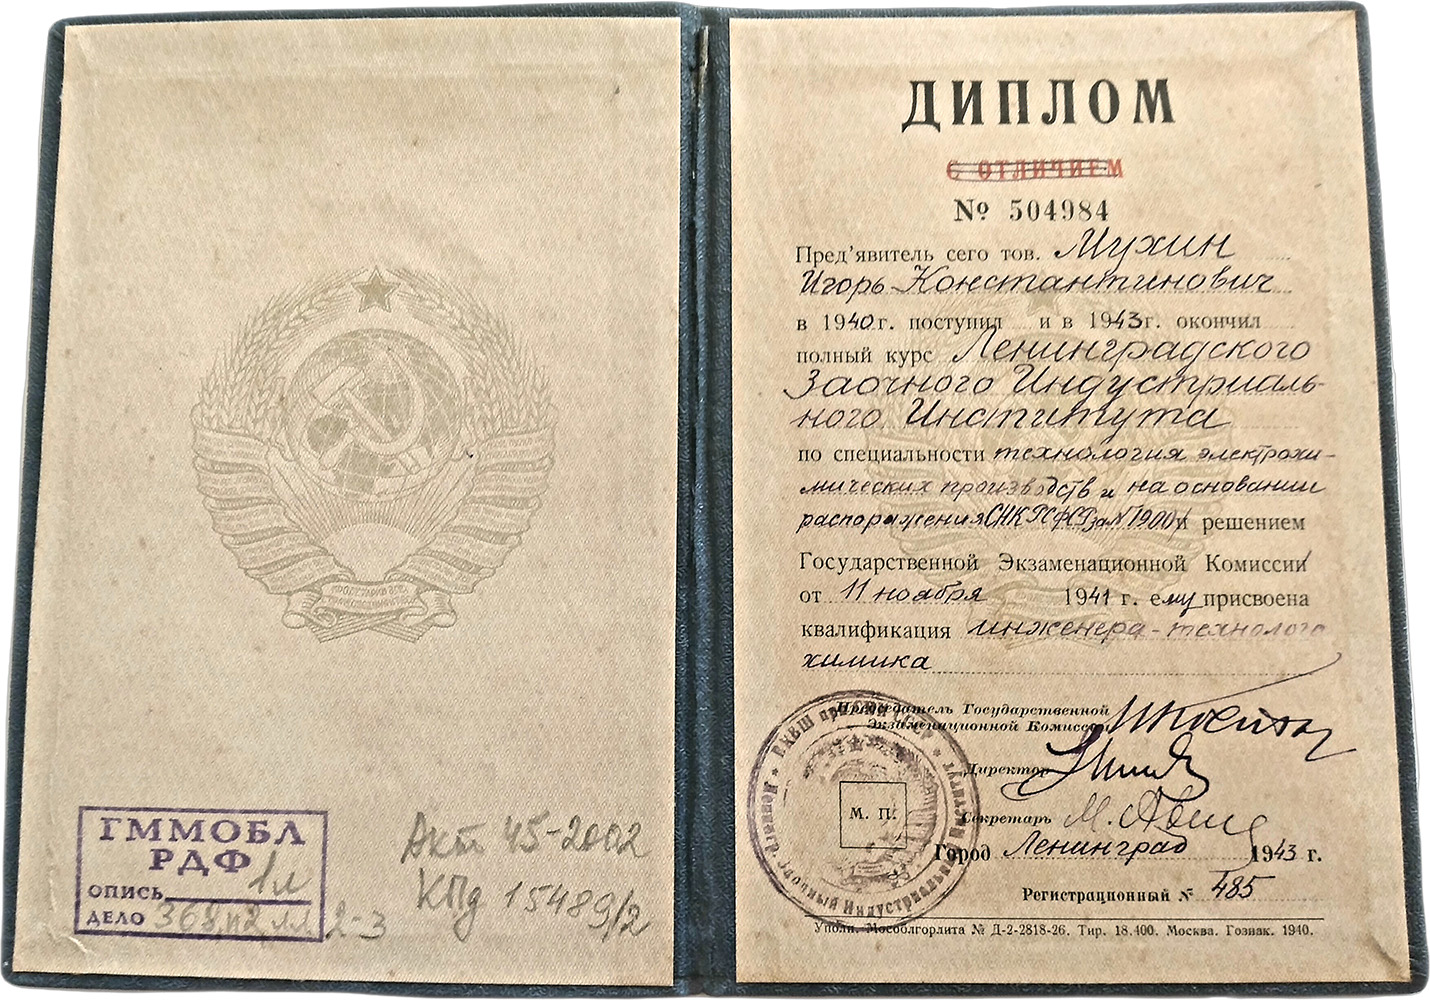 ГММОБЛ
РДФ
ОПИСЬ 1л
ДЕЛО 368, п2 лл 2-3
Акт 45-2002
КПд 15489/2
ДИПЛОМ
С ОТЛИЧИЕМ
№ 504984
Пред'явитель сего тов. Мухин
Игорь Константинович
в 1940 г. поступил и в 1943 г. окончил
полный курс Ленинградского
Заочного Индустриаль-
ного Института
по специальности технология электрохи-
мических производств и на основании
распоряжения СНК РСФСР за № 1900 и решением
Государственной Экзаменационной Комиссии
от 11 ноября 1941 г. ему присвоена
квалификация инженера-технолога
химика
Председатель Государственной
Экзаменационной Комиссии
Директор
Секретарь
М. П.
Город Ленинград 1943 г.
Регистрационный № 485
Уполн. Мособлгорлита № Д-2-2818-26. Тир. 18.400. Москва. Гознак. 1940.